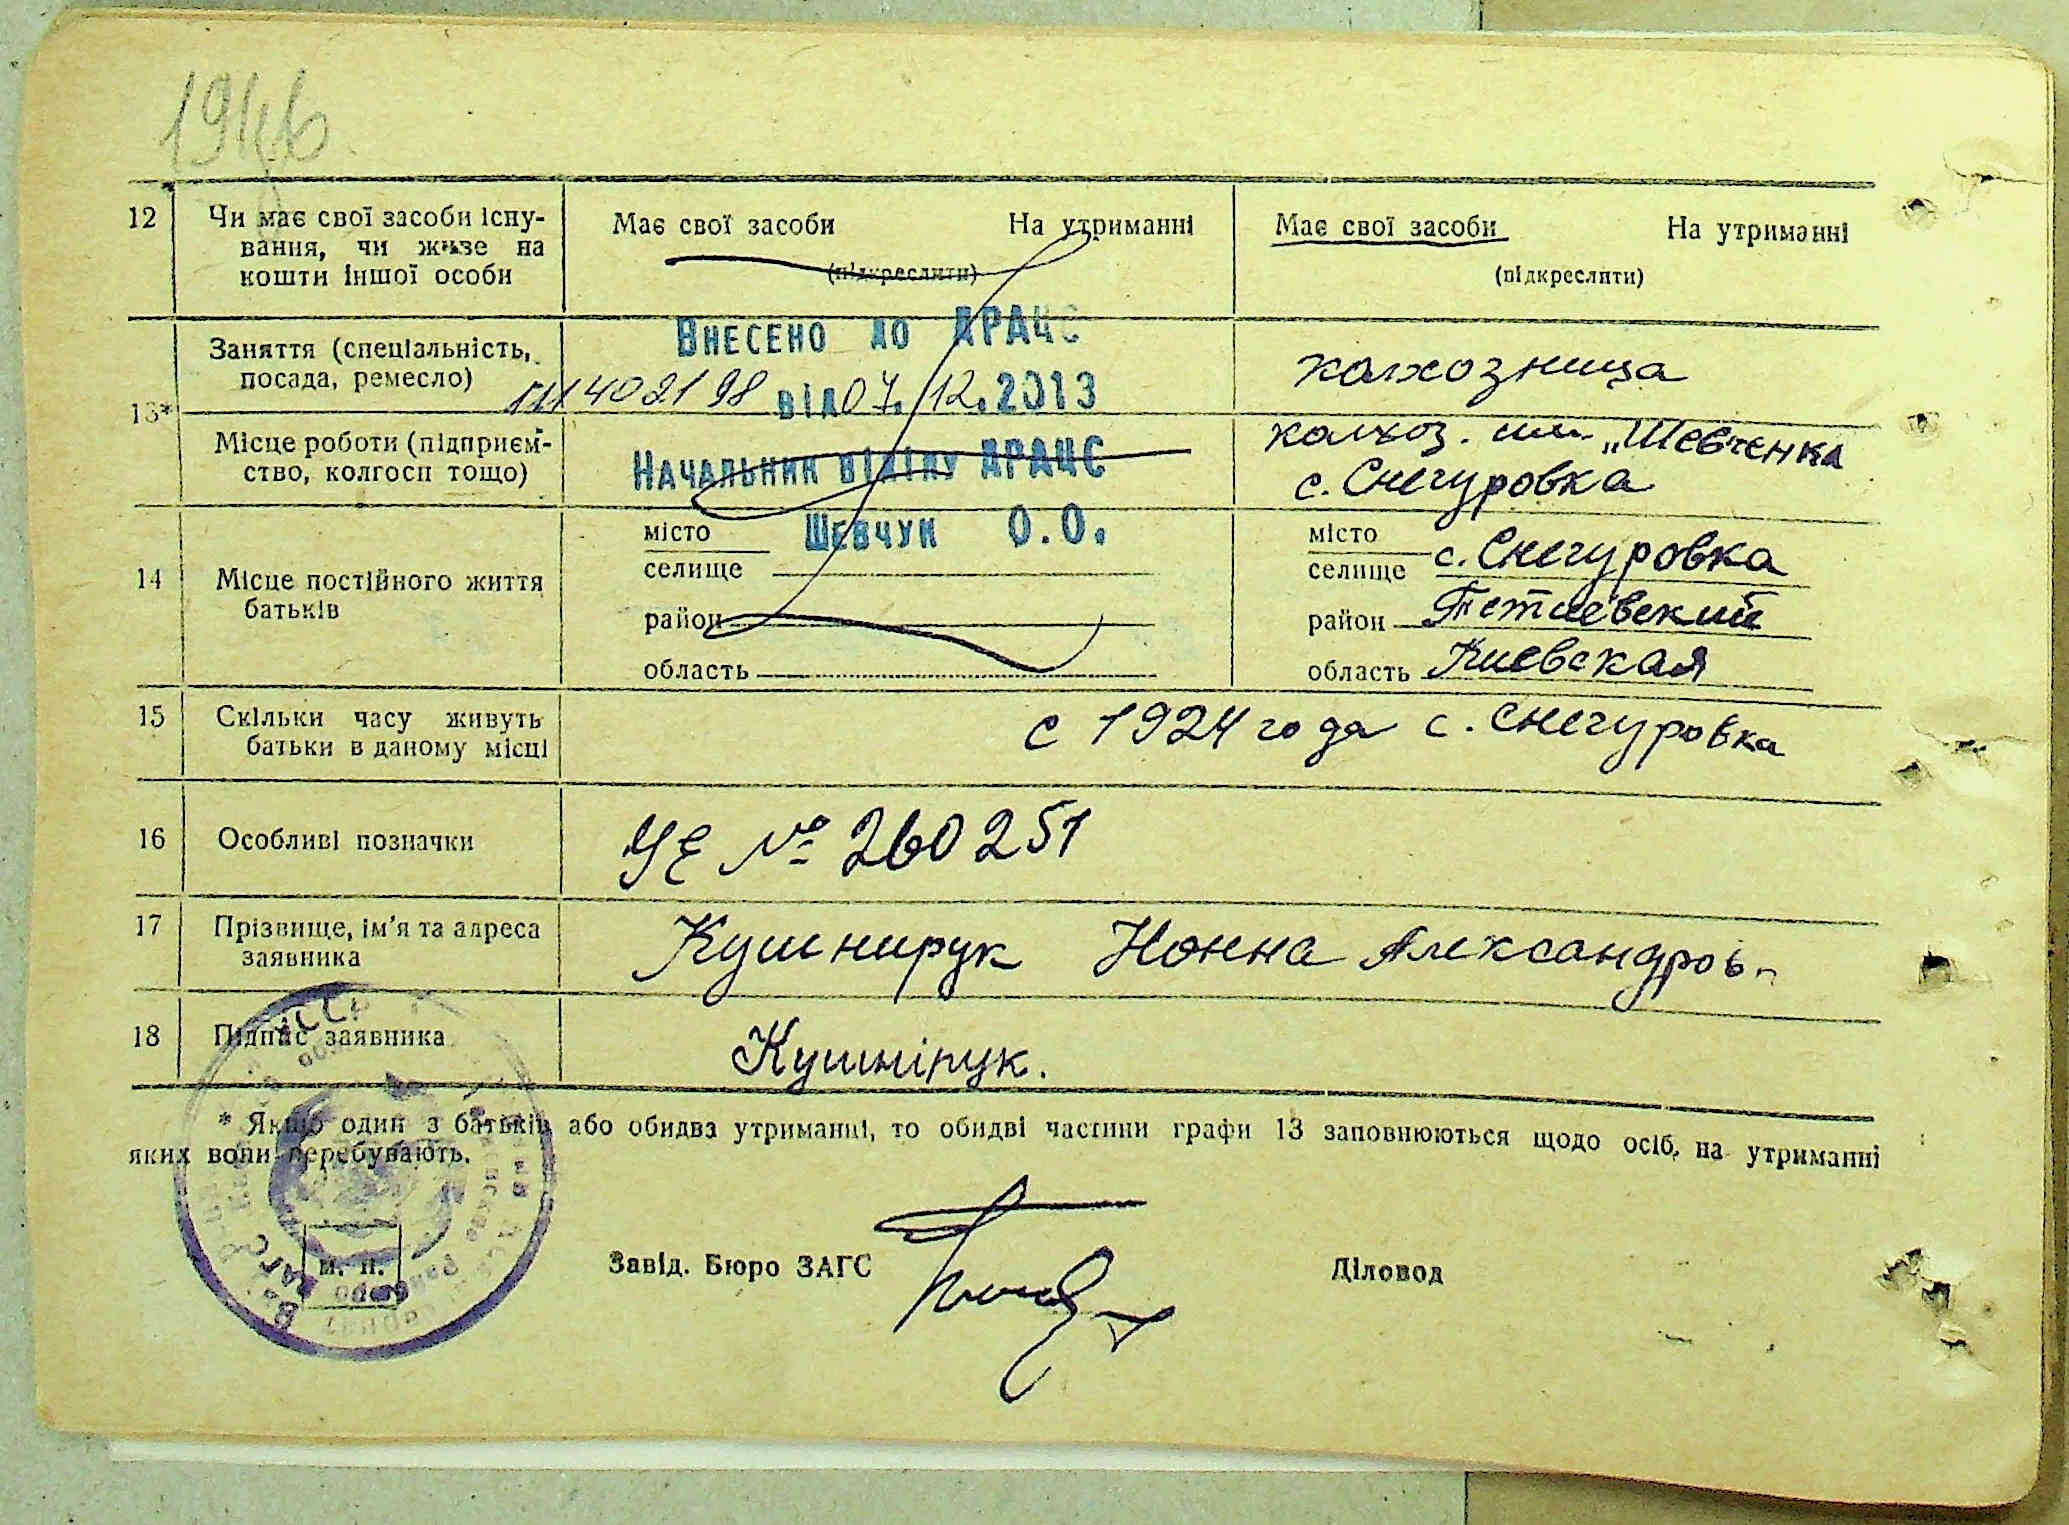 1946
12 Чи має свої засоби існу-
вання, чи живе на
кошти іншої особи
Має свої засоби На утриманні
(підкреслити)
Має свої засоби На утриманні
(підкреслити)
13*
Заняття (спеціальність,
посада, ремесло)
ВНЕСЕНО ДО ДРАЦС
402198 від 07.12.2013
колхозница
Місце роботи (підприєм-
ство, колгосп тощо)
НАЧАЛЬНИК ВІДІЛУ ДРАЦС
колхоз. им. „Шевченка
с. Снегуровка
14 Місце постійного життя
батьків
місто
ШЕВЧУК О.О.
селище
район
область
місто
селище с. Снегуровка
район Тетиевский
область Киевская
15 Скільки часу живуть
батьки в даному місці
с 1924 года с. Снегуровка
16 Особливі позначки
УЕ № 260251
17 Прізвище, ім'я та адреса
заявника
Кушнирук Нонна Александров.
18 Підпис заявника
Кушнірук.
* Якщо один з батьків або обидва утриманці, то обидві частини графи 13 заповнюються щодо осіб, на утриманні
яких вони перебувають.
м. п.
Завід. Бюро ЗАГС
Діловод